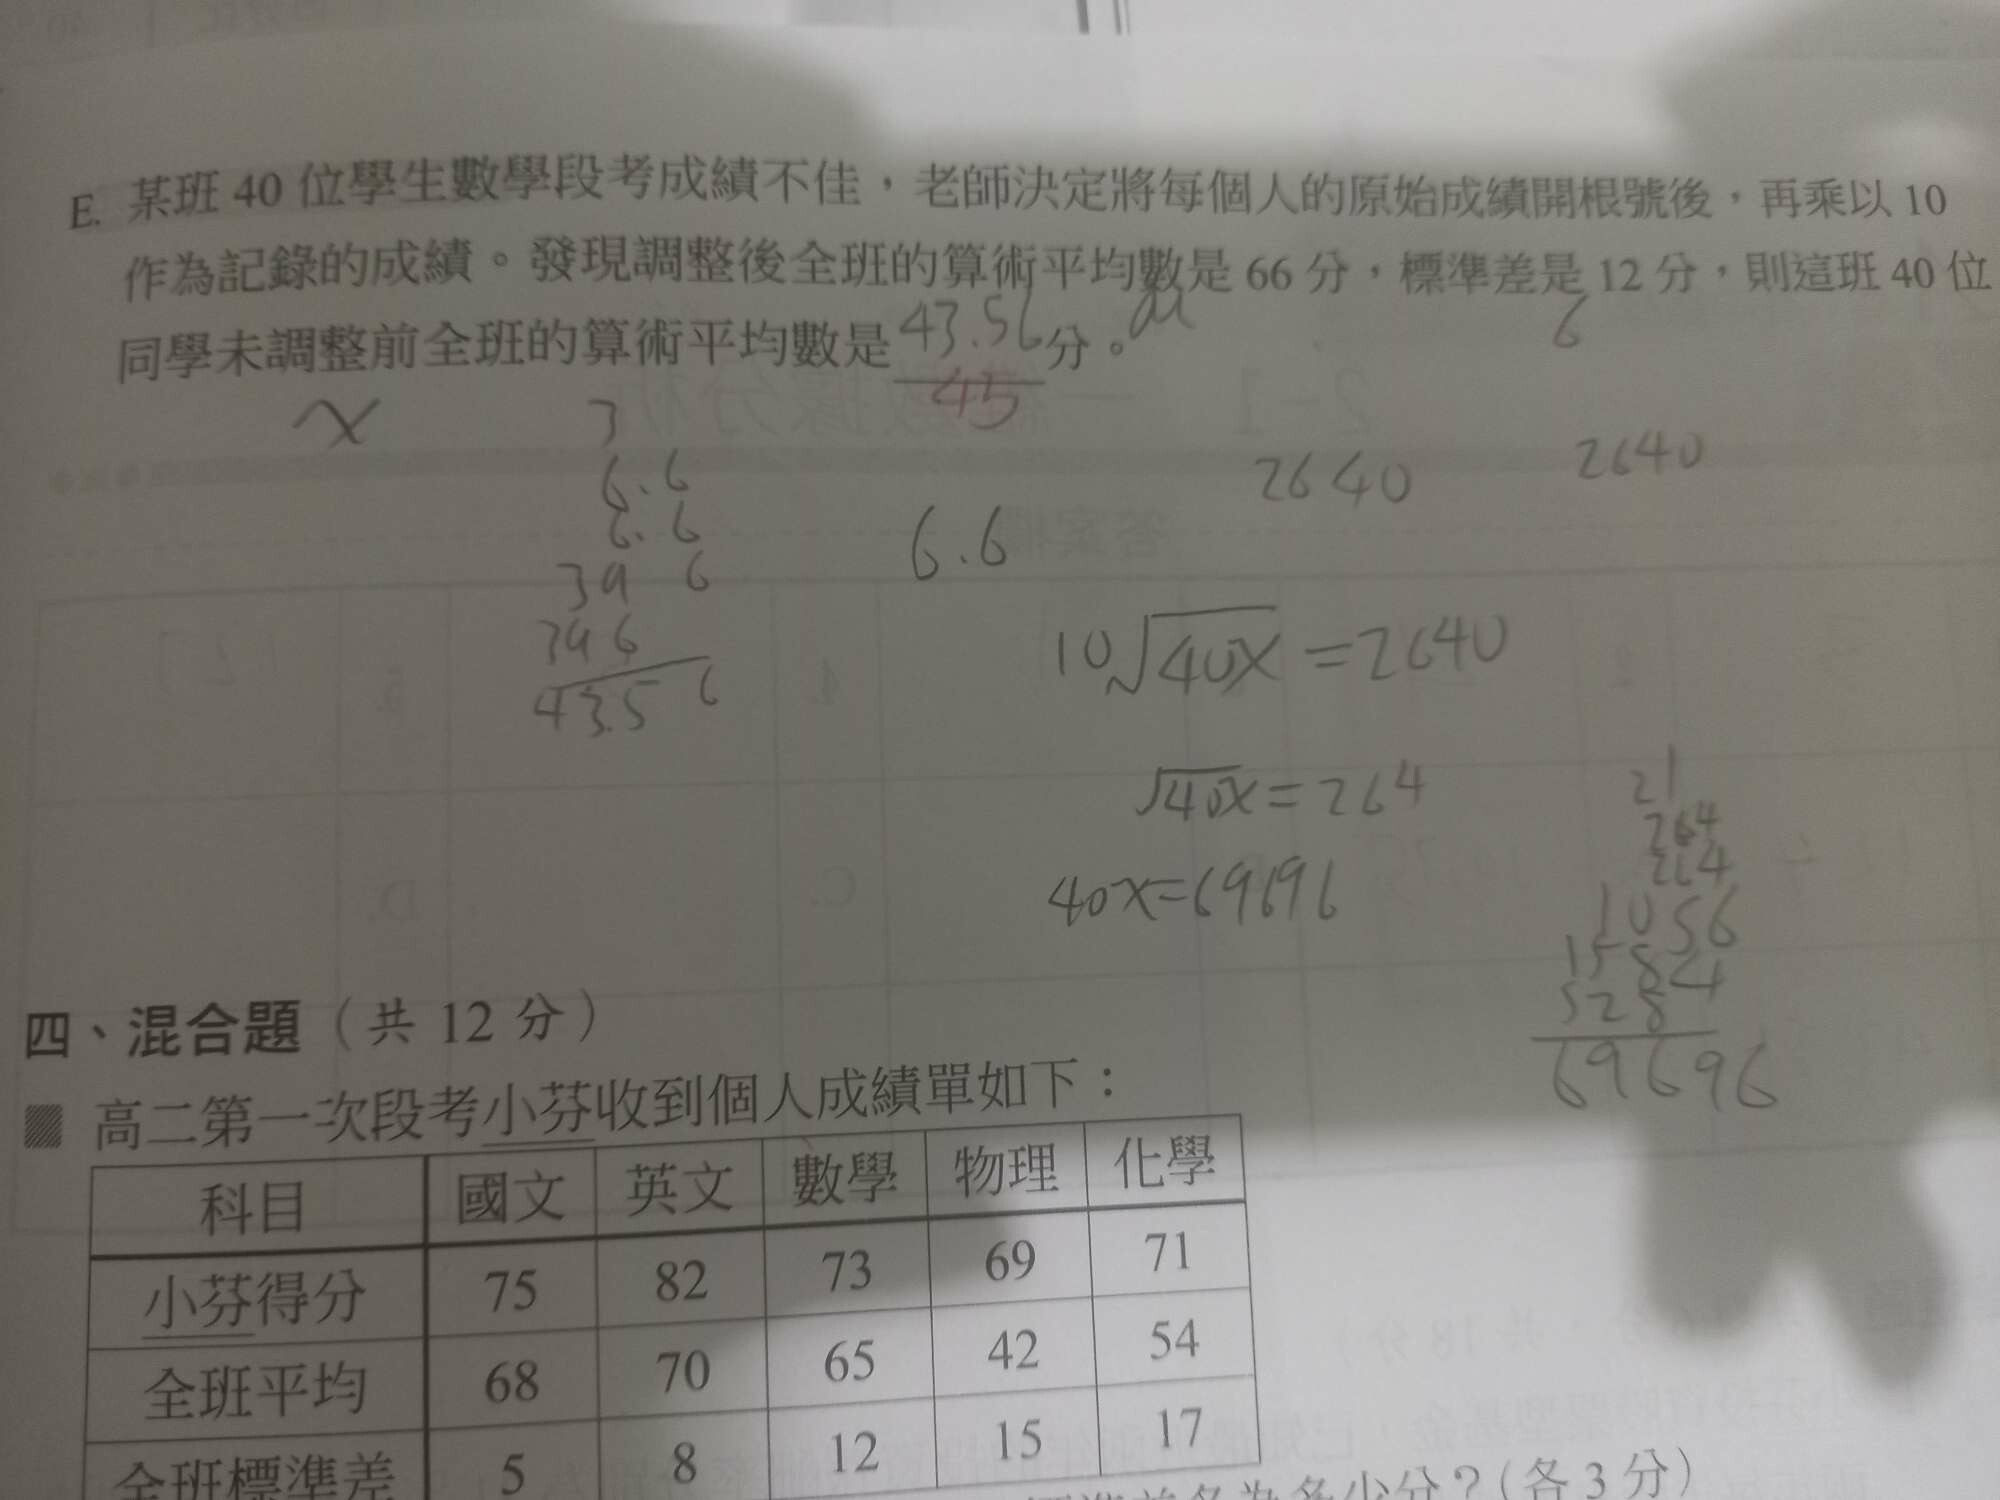 E. 某班 40 位學生數學段考成績不佳，老師決定將每個人的原始成績開根號後，再乘以 10
作為記錄的成績。發現調整後全班的算術平均數是 66 分，標準差是 12 分，則這班 40 位
同學未調整前全班的算術平均數是 43.56 分。
45
x
3
6.6
6.6
39 6
396
43.5 6
6.6
6
2640
2640
10√40x = 2640
√40x = 264
40x = 69696
21
264
264
1056
1584
528
69696
四、混合題（共 12 分）
高二第一次段考小芬收到個人成績單如下：
科目 國文 英文 數學 物理 化學
小芬得分 75 82 73 69 71
全班平均 68 70 65 42 54
全班標準差 5 8 12 15 17
多少分？（各 3 分）